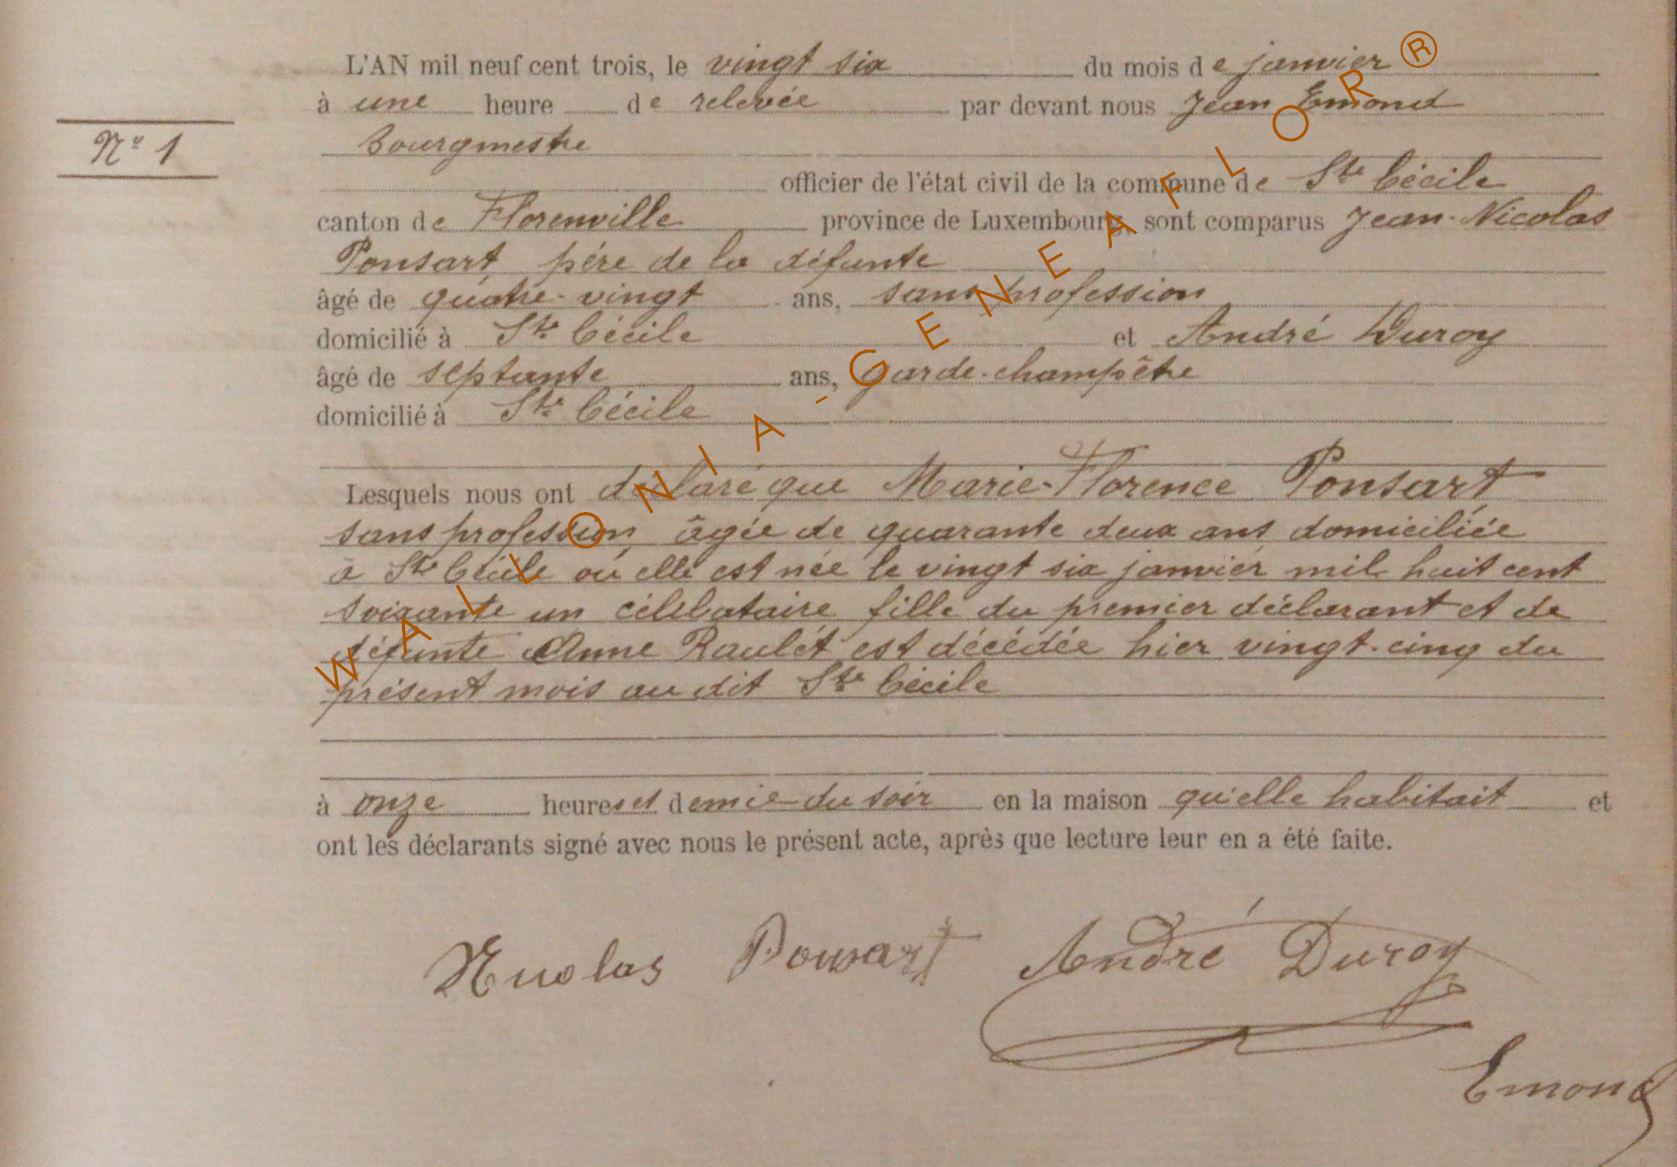 L'AN mil neuf cent trois, le vingt six du mois de janvier
à une heure de relevée par devant nous Jean Emond
Nº 1
Bourgmestre
officier de l'état civil de la commune de Ste Cécile
canton de Florenville province de Luxembourg, sont comparus Jean-Nicolas
Ponsart, père de la défunte
âgé de quatre-vingt ans, sans profession
domicilié à Ste Cécile et André Duroy
âgé de septante ans, garde-champêtre
domicilié à Ste Cécile
Lesquels nous ont déclaré que Marie-Florence Ponsart
sans profession, âgée de quarante deux ans domiciliée
à Ste Cécile où elle est née le vingt six janvier mil huit cent
soixante un célibataire fille du premier déclarant et de
défunte Anne Raulet est décédée hier vingt-cinq du
présent mois au dit Ste Cécile
à onze heures et demie du soir en la maison qu'elle habitait et
ont les déclarants signé avec nous le présent acte, après que lecture leur en a été faite.
Nicolas Ponsart André Duroy
Emond
WALLONIA-GENEAFLOR®